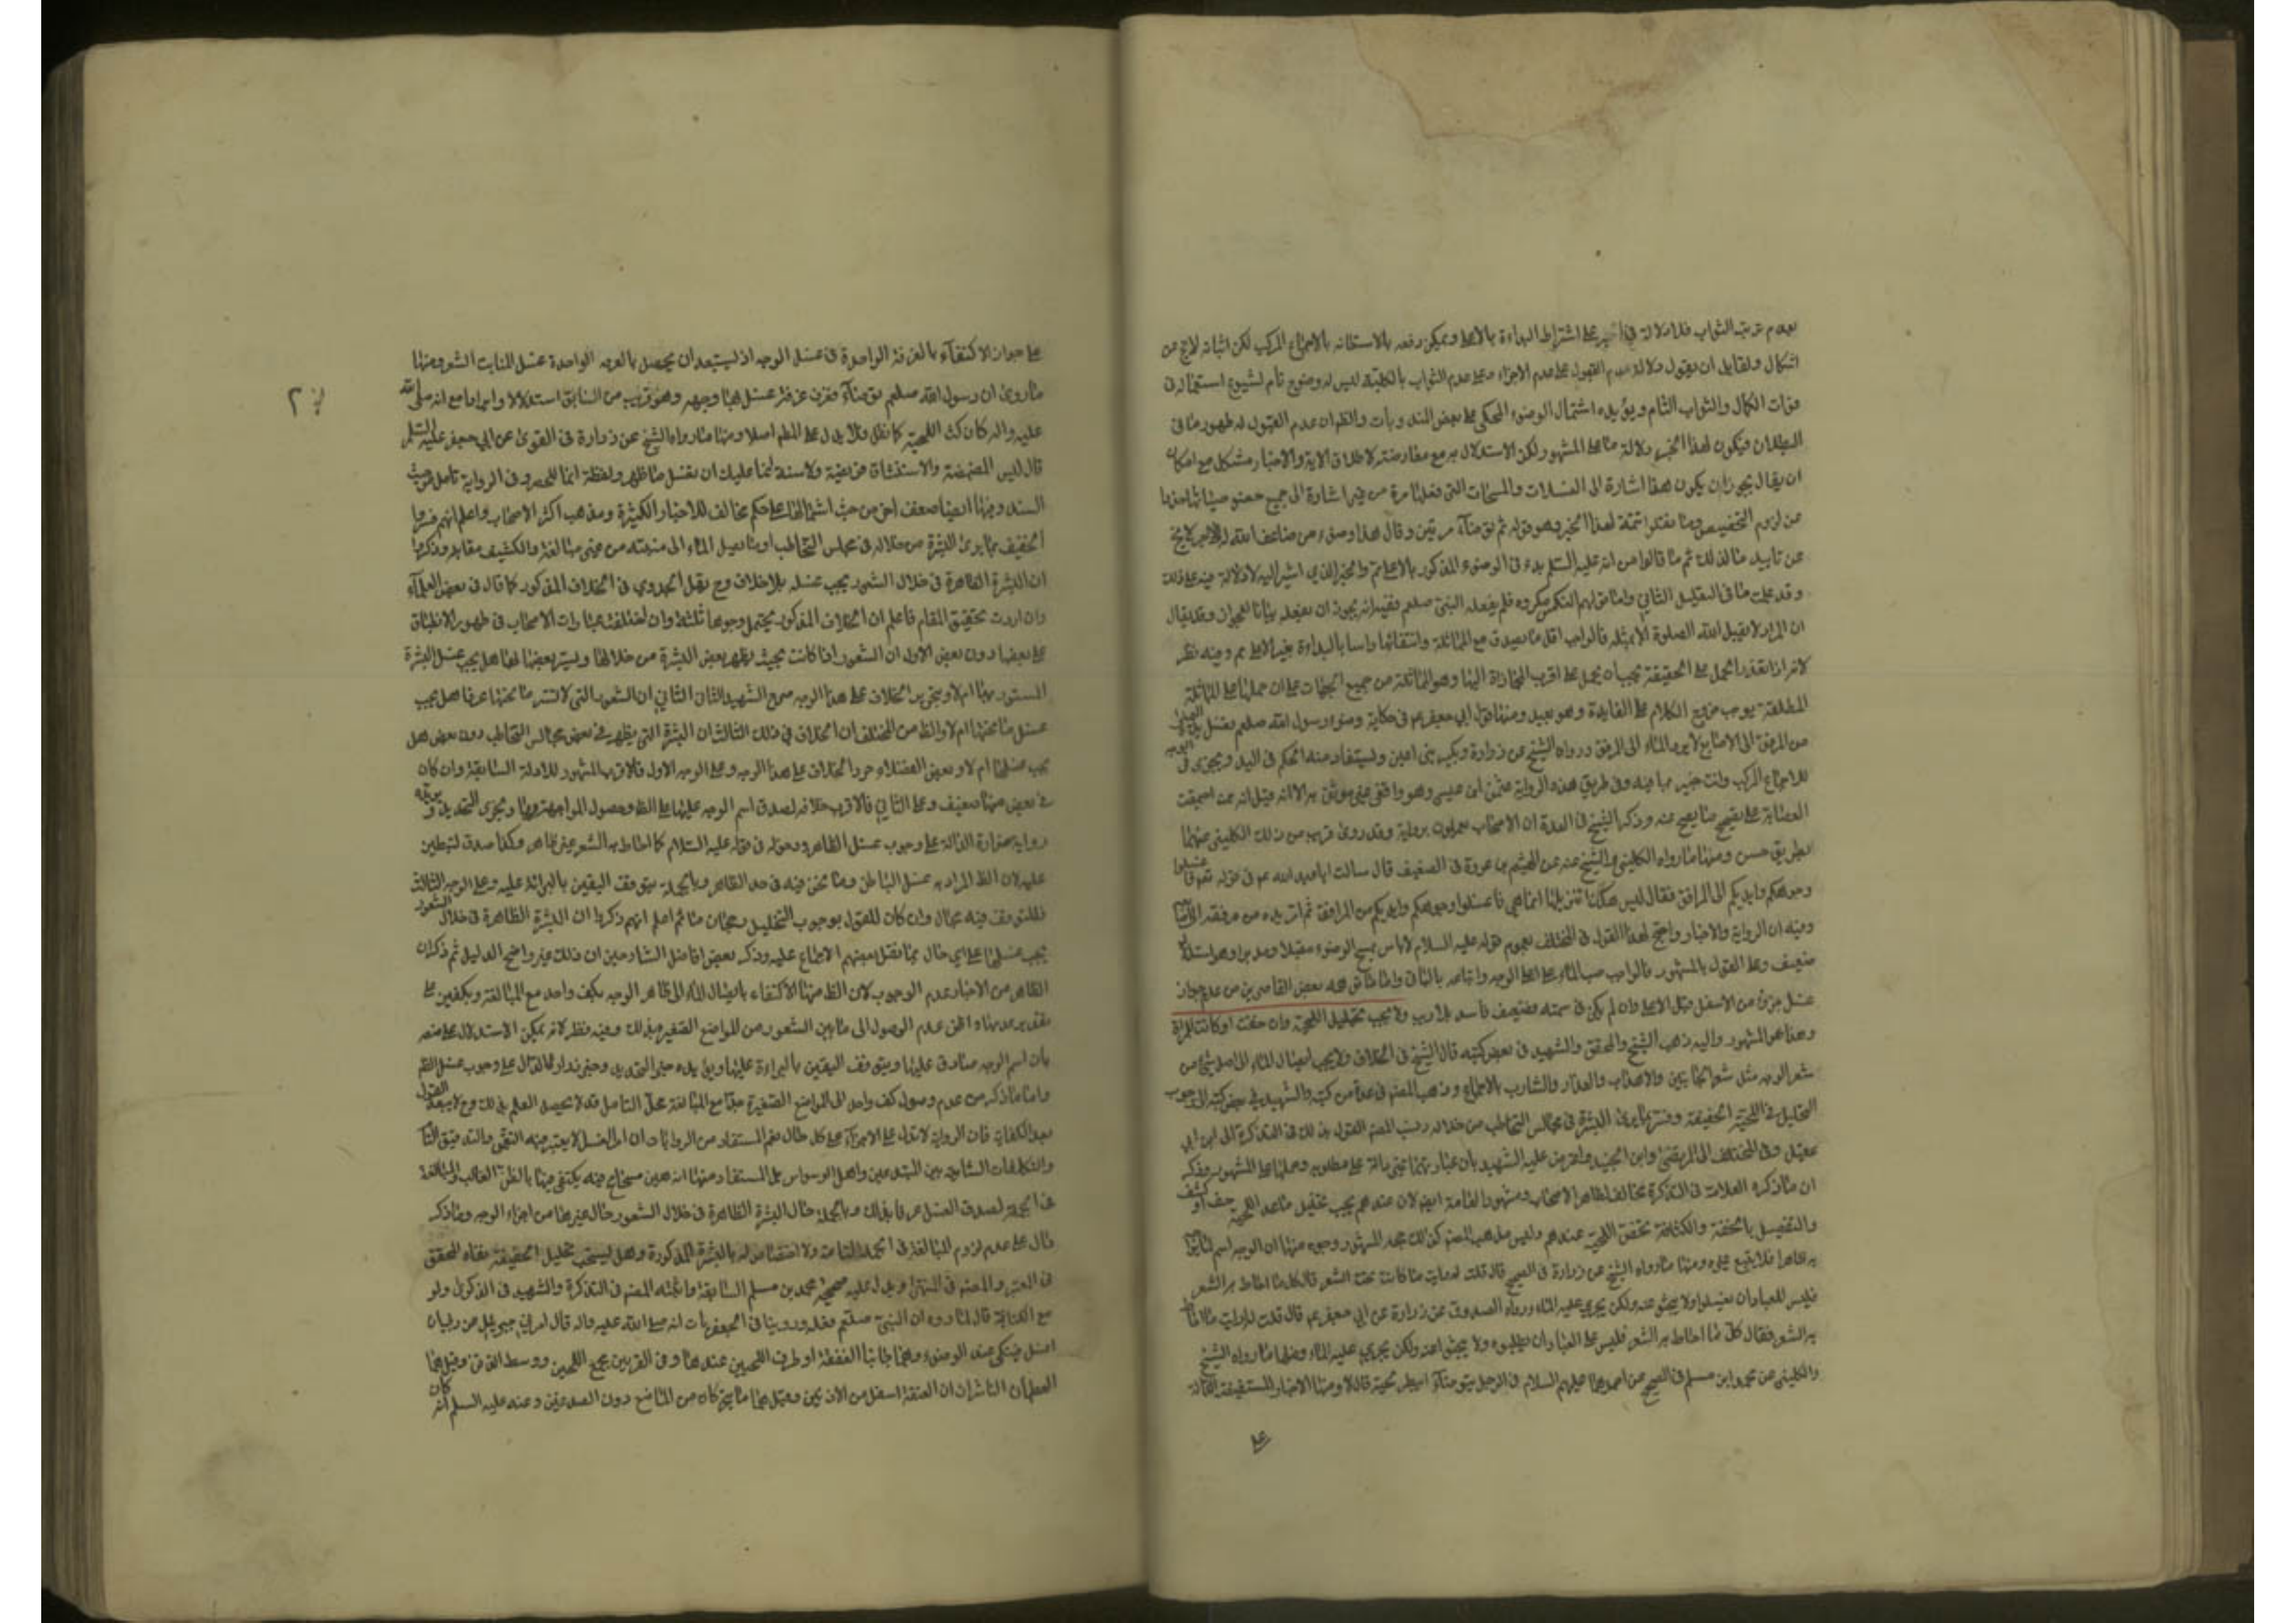 بعدم ترتب الثواب فلا دلالة في الخبر على اشتراط البداءة بالاعلى ويمكن دفعه بالاستعانه بالاجماع المركب لكن اثباته لايخ من
اشكال ولقايل ان يقول دلالة عدم القبول على عدم الاجزاء وعلى عدم الثواب بالكلية ليس له وضوح تام لشيوع استعماله في
فوات الكمال والثواب التام ويؤيده اشتمال الوضوء المحكى على بعض المندوبات والظ ان عدم القبول له ظهور ما في
البطلان فيكون لهذا الخبر دلالة ما على المشهور ولكن الاستدلال به مع معارضته لاطلاق الاية والاخبار مشكل مع امكان
ان يقال يجوز ان يكون هذا اشارة الى الغسلات والمسحات التى فعلها مرة من غير اشارة الى جميع خصوصياتها حذرا
من لزوم التخصيص وما نقلوا تتمة لهذا الخبر وهو قوله ثم توضأ مرتين وقال هذا وضوء من ضاعف الله له الاجر لايخ
عن تاييد ما لذلك ثم ما قالوا من انه عليه السلم بدء في الوضوء المذكور بالاعلى تم والخبر الذي اشير اليه لا دلالة فيه على ذلك
وقد علمت ما في التعليل الثاني واما قولهم النكس مكروه فلم يفعله النبي صلعم ففيه انه يجوز ان يفعله بيانا للجواز وقد يقال
ان المراد لا يقبل الله الصلوة الا بمثله فالواجب اقل ما يصدق مع المماثلة وانتفائها راسا بالبداءة بغير الاعلى مم وفيه نظر
لانه اذا تعذر الحمل على الحقيقة يجب ان يحمل على اقرب المجازات اليها وهو المماثلة من جميع الجهات على ان حملها على المماثلة
المطلقة يوجب خروج الكلام على الفايدة وهو بعيد ومنها قول ابي جعفر عم في حكاية وضوء رسول الله صلعم فغسل يده اليمنى
من المرفق الى الاصابع لا يرد الماء الى المرفق ورواه الشيخ عن زرارة وبكير بنى اعين ويستفاد منه الحكم في اليد ويجرى في الوجه
للاجماع المركب وانت خبير بما فيه وفي طريق هذه الرواية عثمن ابن عيسى وهو واقفى غير موثق به الا انه قيل انه ممن اجمعت
العصابة على تصحيح ما يصح عنه وذكر الشيخ في العدة ان الاصحاب يعملون برواية وقد روى قريب من ذلك الكلينى عنهما
بطريق حسن ومنها ما رواه الكليني والشيخ عنه عن الهيثم بن عروة في الضعيف قال سالت ابا عبد الله عم في قوله تعو فاغسلوا
وجوهكم وايديكم الى المرافق فقال ليس هكذا تنزيلها انما هي فاغسلوا وجوهكم وايديكم من المرافق ثم امر يده من مرفقه الى اصابعه
وفيه ان الرواية والاخبار واحتج لهذا القول في المختلف بعموم قوله عليه السلام لاباس بمسح الوضوء مقبلا ومدبرا وهو استدلال
ضعيف وعلى القول بالمشهور فالواجب صب الماء على اعلى الوجه واتباعه بالباقي واما ما توهمه بعض القاصرين من عدم جواز
غسل جزئ من الاسفل قبل الاعلى وان لم يكن في سمته فضعيف فاسد بلا ريب ولا يجب تخليل اللحية وان خفت او كانت للمراة
وهذا هو المشهور واليه ذهب الشيخ والمحقق والشهيد في بعض كتبه قال الشيخ في الخلاف ولا يجب ايصال الماء الى اصل شئ من
شعر الوجه مثل شعر الحاجبين والاهداب والعذار والشارب بالاجماع وذهب المصنف في عدة من كتبه والشهيد في بعض كتبه الى وجوب
التخليل في اللحية الخفيفة وفسرها بما يرى البشرة في مجالس التخاطب من خلاله ونسب المصنف القول بذلك في التذكرة الى ابن ابي
عقيل وفى المختلف الى المرتضى وابن الجنيد واعترض عليه الشهيد بان عبارتهما غير دالة على مطلوبه وحملها على المشهور وذكر
ان ما ذكره العلامة في التذكرة مخالف لظاهر الاصحاب ومشهور العامة ايض لان عندهم يجب تخليل ما عدا اللحية خف او كثف
والتفصيل بالخفة والكثافة تختص اللحية عندهم وليس مذهب المصنف كذلك حجة المشهور وجوه منها ان الوجه اسم لما يواجه
به ظاهرا فلا يتبع غيره ومنها ما رواه الشيخ عن زرارة في الصحيح قال قلت له ارايت ما كان تحت الشعر قال كل ما احاط به الشعر
فليس للعباد ان يغسلوا ولا يبحثوا عنه ولكن يجرى عليه الماء ورواه الصدوق عن زرارة عن ابى جعفر عم قال قلت له ارايت ما احاط
به الشعر فقال كل ما احاط به الشعر فليس على العباد ان يطلبوه ولا يبحثوا عنه ولكن يجرى عليه الماء ومنها ما رواه الشيخ
والكلينى عن محمد ابن مسلم في الصحيح عن احدهما عليهم السلام في الرجل يتوضأ ايبطن لحيته قال لا ومنها الاخبار المستفيضة الدالة
على
على جواز الاكتفاء بالغرفة الواحدة في غسل الوجه اذ يستبعد ان يحصل بالغرفة الواحدة غسل المنابت الشعر ومنها
ما روى ان رسول الله صلعم توضأ فغرف غرفة غسل بها وجهه وهو قريب من السابق استدلالا وايرادا مع انه صلى الله
عليه واله كان كث اللحية كما نقل ولا يدل على المطم اصلا ومنها ما رواه الشيخ عن زرارة في القوى عن ابي جعفر عليه السلم
قال ليس المضمضة والاستنشاق فريضة ولا سنة انما عليك ان تغسل ما ظهر ولفظة انما للحصر وفى الرواية تامل من حيث
السند وفيها ايضا ضعف اخر من حيث اشتمالها على حكم مخالف للاخبار الكثيرة ومذهب اكثر الاصحاب واعلم انهم فسروا
الخفيف بما يرى البشرة من خلاله في مجلس التخاطب او بما يصل الماء الى منبته من غير مبالغة والكثيف مقابله وذكروا
ان البشرة الظاهرة في خلال الشعور يجب غسله بلا خلاف وح يقل الجدوى في الخلاف المذكور كما قال في بعض العلماء
وان اردت تحقيق المقام فاعلم ان الخلاف المذكور يحتمل وجوها ثلثة وان اختلفت عبارات الاصحاب في ظهور الانطباق
على بعضها دون بعض الاول ان الشعور اذا كانت بحيث يظهر بعض البشرة من خلالها ويستر بعضها فهل يجب غسل البشرة
المستور بها ام لا وبتحرير الخلاف على هذا الوجه صرح الشهيد الثانى الثاني ان الشعور التى لا تستر ما تحتها عرفا هل يجب
غسل ما تحتها ام لا والظ من المختلف ان الخلاف في ذلك الثالث ان البشرة التى يظهر في بعض مجالس التخاطب دون بعض هل
يجب غسلها ام لا وبعض الفضلاء حرر الخلاف على هذا الوجه وعلى الوجه الاول فالاقرب المشهور للادلة السابقة وان كان
في بعض منها ضعيف وعلى الثاني فالاقرب خلافه لصدق اسم الوجه عليها على الظ وحصول المواجهة بها ويجرى التحديد و يؤيده
رواية زرارة الدالة على وجوب غسل الظاهر ودخوله في قوله عليه السلام كلما احاط به الشعر غير ظاهر وكذا صدق التبطين
عليه لان الظ المراد به غسل الباطن وما نحن فيه في حد الظاهر وبالجملة يتوقف اليقين بالبرائة عليه وعلى الوجه الثالث
فللتوقف فيه مجال وان كان للقول بوجوب التخليل رجحان ما ثم اعلم انهم ذكروا ان البشرة الظاهرة في خلال الشعور
يجب غسلها على اي حال ربما نقل بعضهم الاجماع عليه وذكر بعض افاضل الشارحين ان ذلك غير واضح الدليل ثم ذكر ان
الظاهر من الاخبار عدم الوجوب لان الظ منها الاكتفاء بايصال الماء الى ظاهر الوجه بكف واحد مع المبالغة وبكفين على
تقدير عدمها والظن عدم الوصول الى ما بين الشعور من المواضع الصغير بذلك وفيه نظر لانه يمكن الاستدلال عليه
بان اسم الوجه صادق عليها ويتوقف اليقين بالبراءة عليها ويؤيده خبر التحديد وخبر زرارة الدال على وجوب غسل الظاهر
واما ما ذكره من عدم وصول كف واحد الى المواضع الصغيرة جدا مع المبالغة محل التامل قد لا يحصل العلم بذلك وح لا يبعد القول
بعد الكفاية فان الرواية لا تدل على الاجزاء على كل حال نعم المستفاد من الروايات ان امر الغسل لا يعتبر فيه التعمق والتدقيق التام
والتكلفات الشايعة بين المبتدعين واهل الوسواس بل المستفاد منها انه هين مسامح فيه يكتفى فيها بالظن الغالب والمبالغة
فى الجملة لصدق الغسل عرفا بذلك وبالجملة حال البشرة الظاهرة في خلال الشعور حال غيرها من اجزاء الوجه وما ذكر
دال على عدم لزوم المبالغة في الجملة التامة ولا اختصاص له بالبشرة المذكورة وهل يستحب تخليل الخفيفة نفاه المحقق
في المعتبر والمصنف في المنتهى ويدل عليه صحيحة محمد بن مسلم السابقة واثبته المصنف في التذكرة والشهيد في الذكرى ولو
مع الكثافة قال لما رووه ان النبى صلعم فعله وروينا في الجعفريات انه صلى الله عليه واله قال امرني جبرئيل عن ربي ان
اغسل فنيكي عند الوضوء وهما جانبا العنفقة او طرف اللحيين عندها وفى الغريبين مجمع اللحيين ووسط الذقن وقيل هما
العظمان الناشزان ان العنفقة اسفل من الاذنين وقيل هما ما يتحركان من الماضغ دون الصدغين وعنه عليه السلم انه كان